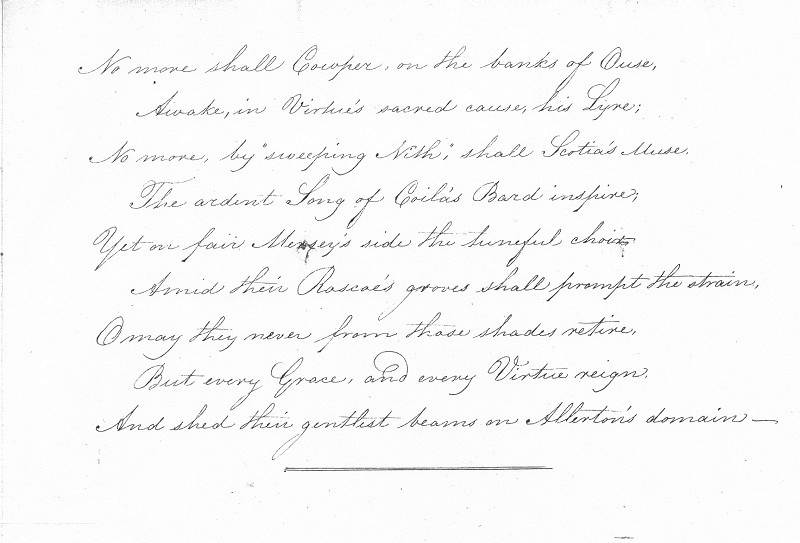 No more shall Cowper, on the banks of Ouse,
Awake, in Virtue's sacred cause, his Lyre;
No more, by "sweeping Nith", shall Scotia's Muse.
The ardent Song of Coila's Bard inspire;
Yet on fair Mersey's side the tuneful choir
Amid their Roscoe's groves shall prompt the strain,
O may they never from those shades retire,
But every Grace, and every Virtue reign.
And shed their gentlest beams on Allerton's domain —